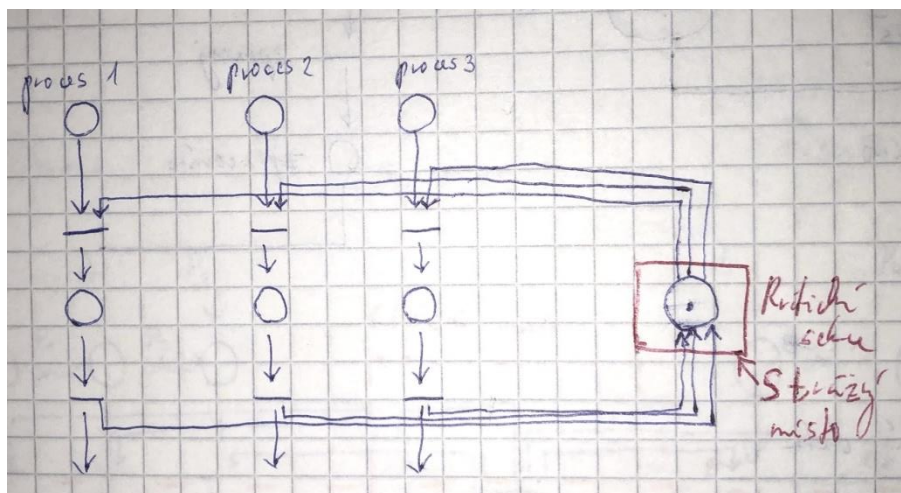 proces 1
proces 2
proces 3
Kritická
sekce
Strážný
místo